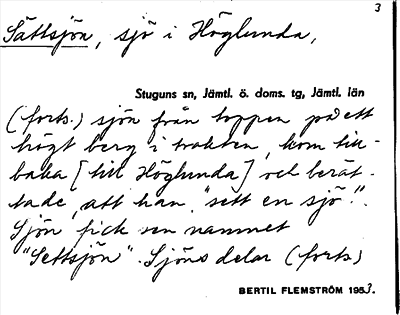 3
Sättsjön, sjö i Höglunda,
Stuguns sn, Jämtl. ö. doms. tg, Jämtl. län
(forts.) sjön från toppen på ett
högt berg i trakten, kom till-
baka [till Höglunda] och berät-
tade, att han "sett en sjö!".
Sjön fick sen namnet
"Settsjön". Sjöns delar (forts)
BERTIL FLEMSTRÖM 1953.